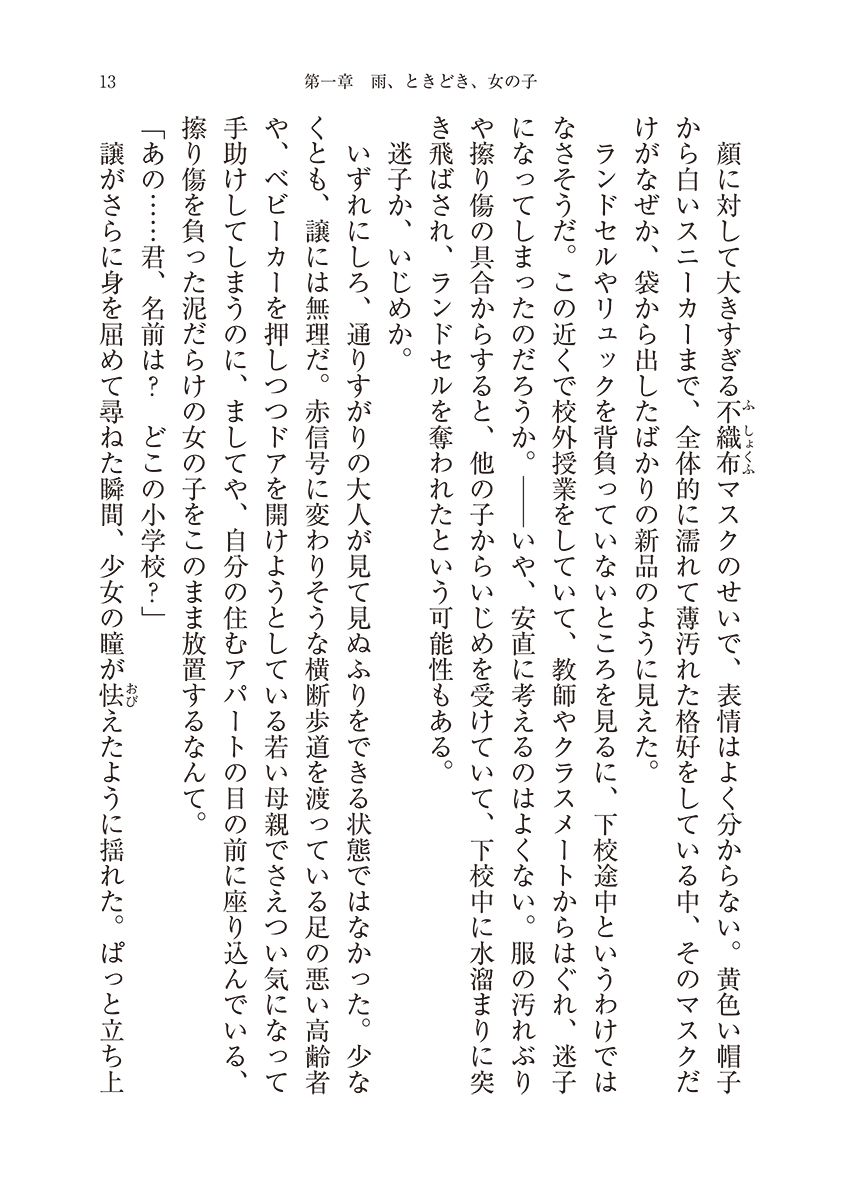 13
第一章　雨、ときどき、女の子
　顔に対して大きすぎる不織布マスクのせいで、表情はよく分からない。黄色い帽子
から白いスニーカーまで、全体的に濡れて薄汚れた格好をしている中、そのマスクだ
けがなぜか、袋から出したばかりの新品のように見えた。
　ランドセルやリュックを背負っていないところを見るに、下校途中というわけでは
なさそうだ。この近くで校外授業をしていて、教師やクラスメートからはぐれ、迷子
になってしまったのだろうか。――いや、安直に考えるのはよくない。服の汚れぶり
や擦り傷の具合からすると、他の子からいじめを受けていて、下校中に水溜まりに突
き飛ばされ、ランドセルを奪われたという可能性もある。
　迷子か、いじめか。
　いずれにしろ、通りすがりの大人が見て見ぬふりをできる状態ではなかった。少な
くとも、譲には無理だ。赤信号に変わりそうな横断歩道を渡っている足の悪い高齢者
や、ベビーカーを押しつつドアを開けようとしている若い母親でさえつい気になって
手助けしてしまうのに、ましてや、自分の住むアパートの目の前に座り込んでいる、
擦り傷を負った泥だらけの女の子をこのまま放置するなんて。
「あの……君、名前は？　どこの小学校？」
　譲がさらに身を屈めて尋ねた瞬間、少女の瞳が怯えたように揺れた。ぱっと立ち上
ふしょくふ
おび